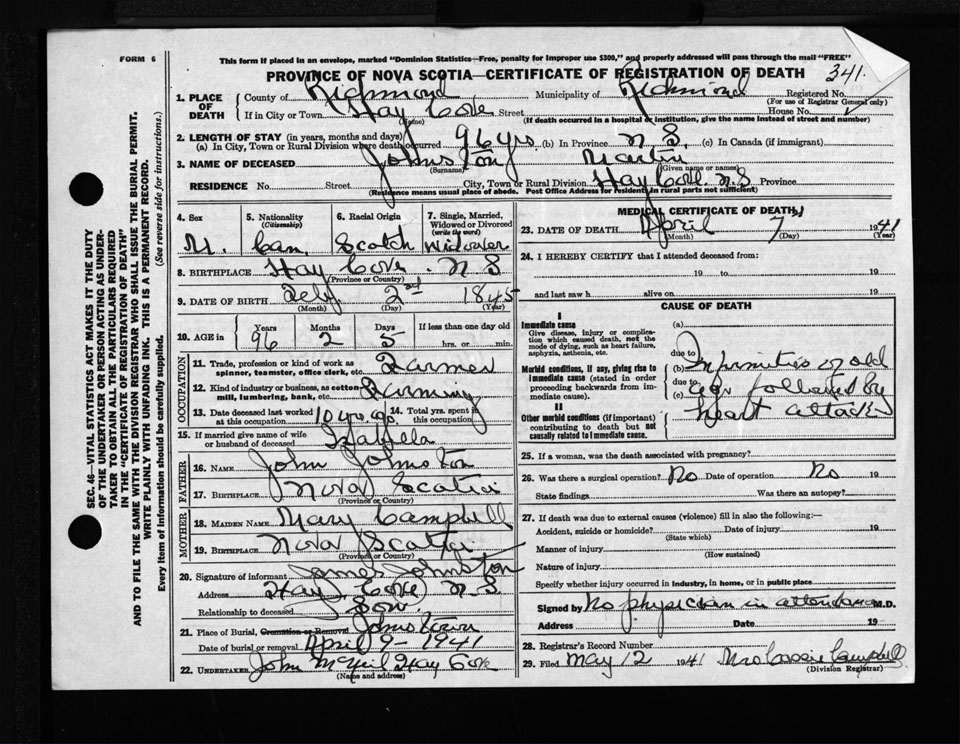 FORM 6
This form if placed in an envelope, marked "Dominion Statistics—Free, penalty for improper use $300," and properly addressed will pass through the mail "FREE"
PROVINCE OF NOVA SCOTIA—CERTIFICATE OF REGISTRATION OF DEATH 341.
1. PLACE OF DEATH County of Richmond Municipality of Richmond Registered No.
(For use of Registrar General only)
If in City or Town Hay Cove Street House No.
(Name) (If death occurred in a hospital or institution, give the name instead of street and number)
2. LENGTH OF STAY (in years, months and days)
(a) In City, Town or Rural Division where death occurred 96 yrs (b) In Province N S. (c) In Canada (if immigrant)
3. NAME OF DECEASED Johnston Martin
(Surname) (Given name or names)
RESIDENCE No. Street City, Town or Rural Division Hay Cove. N S Province
(Residence means usual place of abode. Post Office Address for Residents in rural parts not sufficient)
4. Sex M.
5. Nationality (Citizenship) Can
6. Racial Origin Scotch
7. Single, Married, Widowed or Divorced (write the word) Widower
8. BIRTHPLACE Hay Cove. N S
(Province or Country)
9. DATE OF BIRTH Feby 2nd 1845
(Month) (Day) (Year)
10. AGE in Years 96 Months 2 Days 5 If less than one day old hrs. or min.
OCCUPATION
11. Trade, profession or kind of work as spinner, teamster, office clerk, etc. Farmer
12. Kind of industry or business, as cotton-mill, lumbering, bank, etc. Farming
13. Date deceased last worked at this occupation 10 yrs ago 14. Total yrs. spent in this occupation
15. If married give name of wife or husband of deceased Isabella
FATHER
16. NAME John Johnston
17. BIRTHPLACE Nova Scotia
(Province or Country)
MOTHER
18. MAIDEN NAME Mary Campbell
19. BIRTHPLACE Nova Scotia
(Province or Country)
20. Signature of informant Johnston
Address Hay Cove N S
Relationship to deceased Son
21. Place of Burial, Cremation or Removal Johnstown
Date of burial or removal April 9 - 1941
22. UNDERTAKER John McNeil Hay Cove
(Name and address)
MEDICAL CERTIFICATE OF DEATH
23. DATE OF DEATH April 7 1941
(Month) (Day) (Year)
24. I HEREBY CERTIFY that I attended deceased from:
19 to 19
and last saw h alive on 19
CAUSE OF DEATH
I
Immediate cause (a)
Give disease, injury or complication which caused death, not the mode of dying, such as heart failure, asphyxia, asthenia, etc.
due to
Morbid conditions, if any, giving rise to immediate cause (stated in order proceeding backwards from immediate cause).
(b) Infirmities of old
due to
(c) age followed by
heart attack
II
Other morbid conditions (if important) contributing to death but not causally related to immediate cause.
25. If a woman, was the death associated with pregnancy?
26. Was there a surgical operation? No Date of operation No 19
State findings Was there an autopsy?
27. If death was due to external causes (violence) fill in also the following:—
Accident, suicide or homicide? Date of injury 19
(State which)
Manner of injury
(How sustained)
Nature of injury
Specify whether injury occurred in industry, in home, or in public place
Signed by No physician in attendance M.D.
Address Date 19
28. Registrar's Record Number
29. Filed May 12 1941 Mrs Cassie Campbell
(Division Registrar)
SEC. 46—VITAL STATISTICS ACT MAKES IT THE DUTY
OF THE UNDERTAKER OR PERSON ACTING AS UNDER-
TAKER TO OBTAIN ALL THE PARTICULARS REQUIRED
IN THE "CERTIFICATE OF REGISTRATION OF DEATH"
AND TO FILE THE SAME WITH THE DIVISION REGISTRAR WHO SHALL ISSUE THE BURIAL PERMIT.
WRITE PLAINLY WITH UNFADING INK. THIS IS A PERMANENT RECORD.
Every item of information should be carefully supplied. (See reverse side for instructions.)